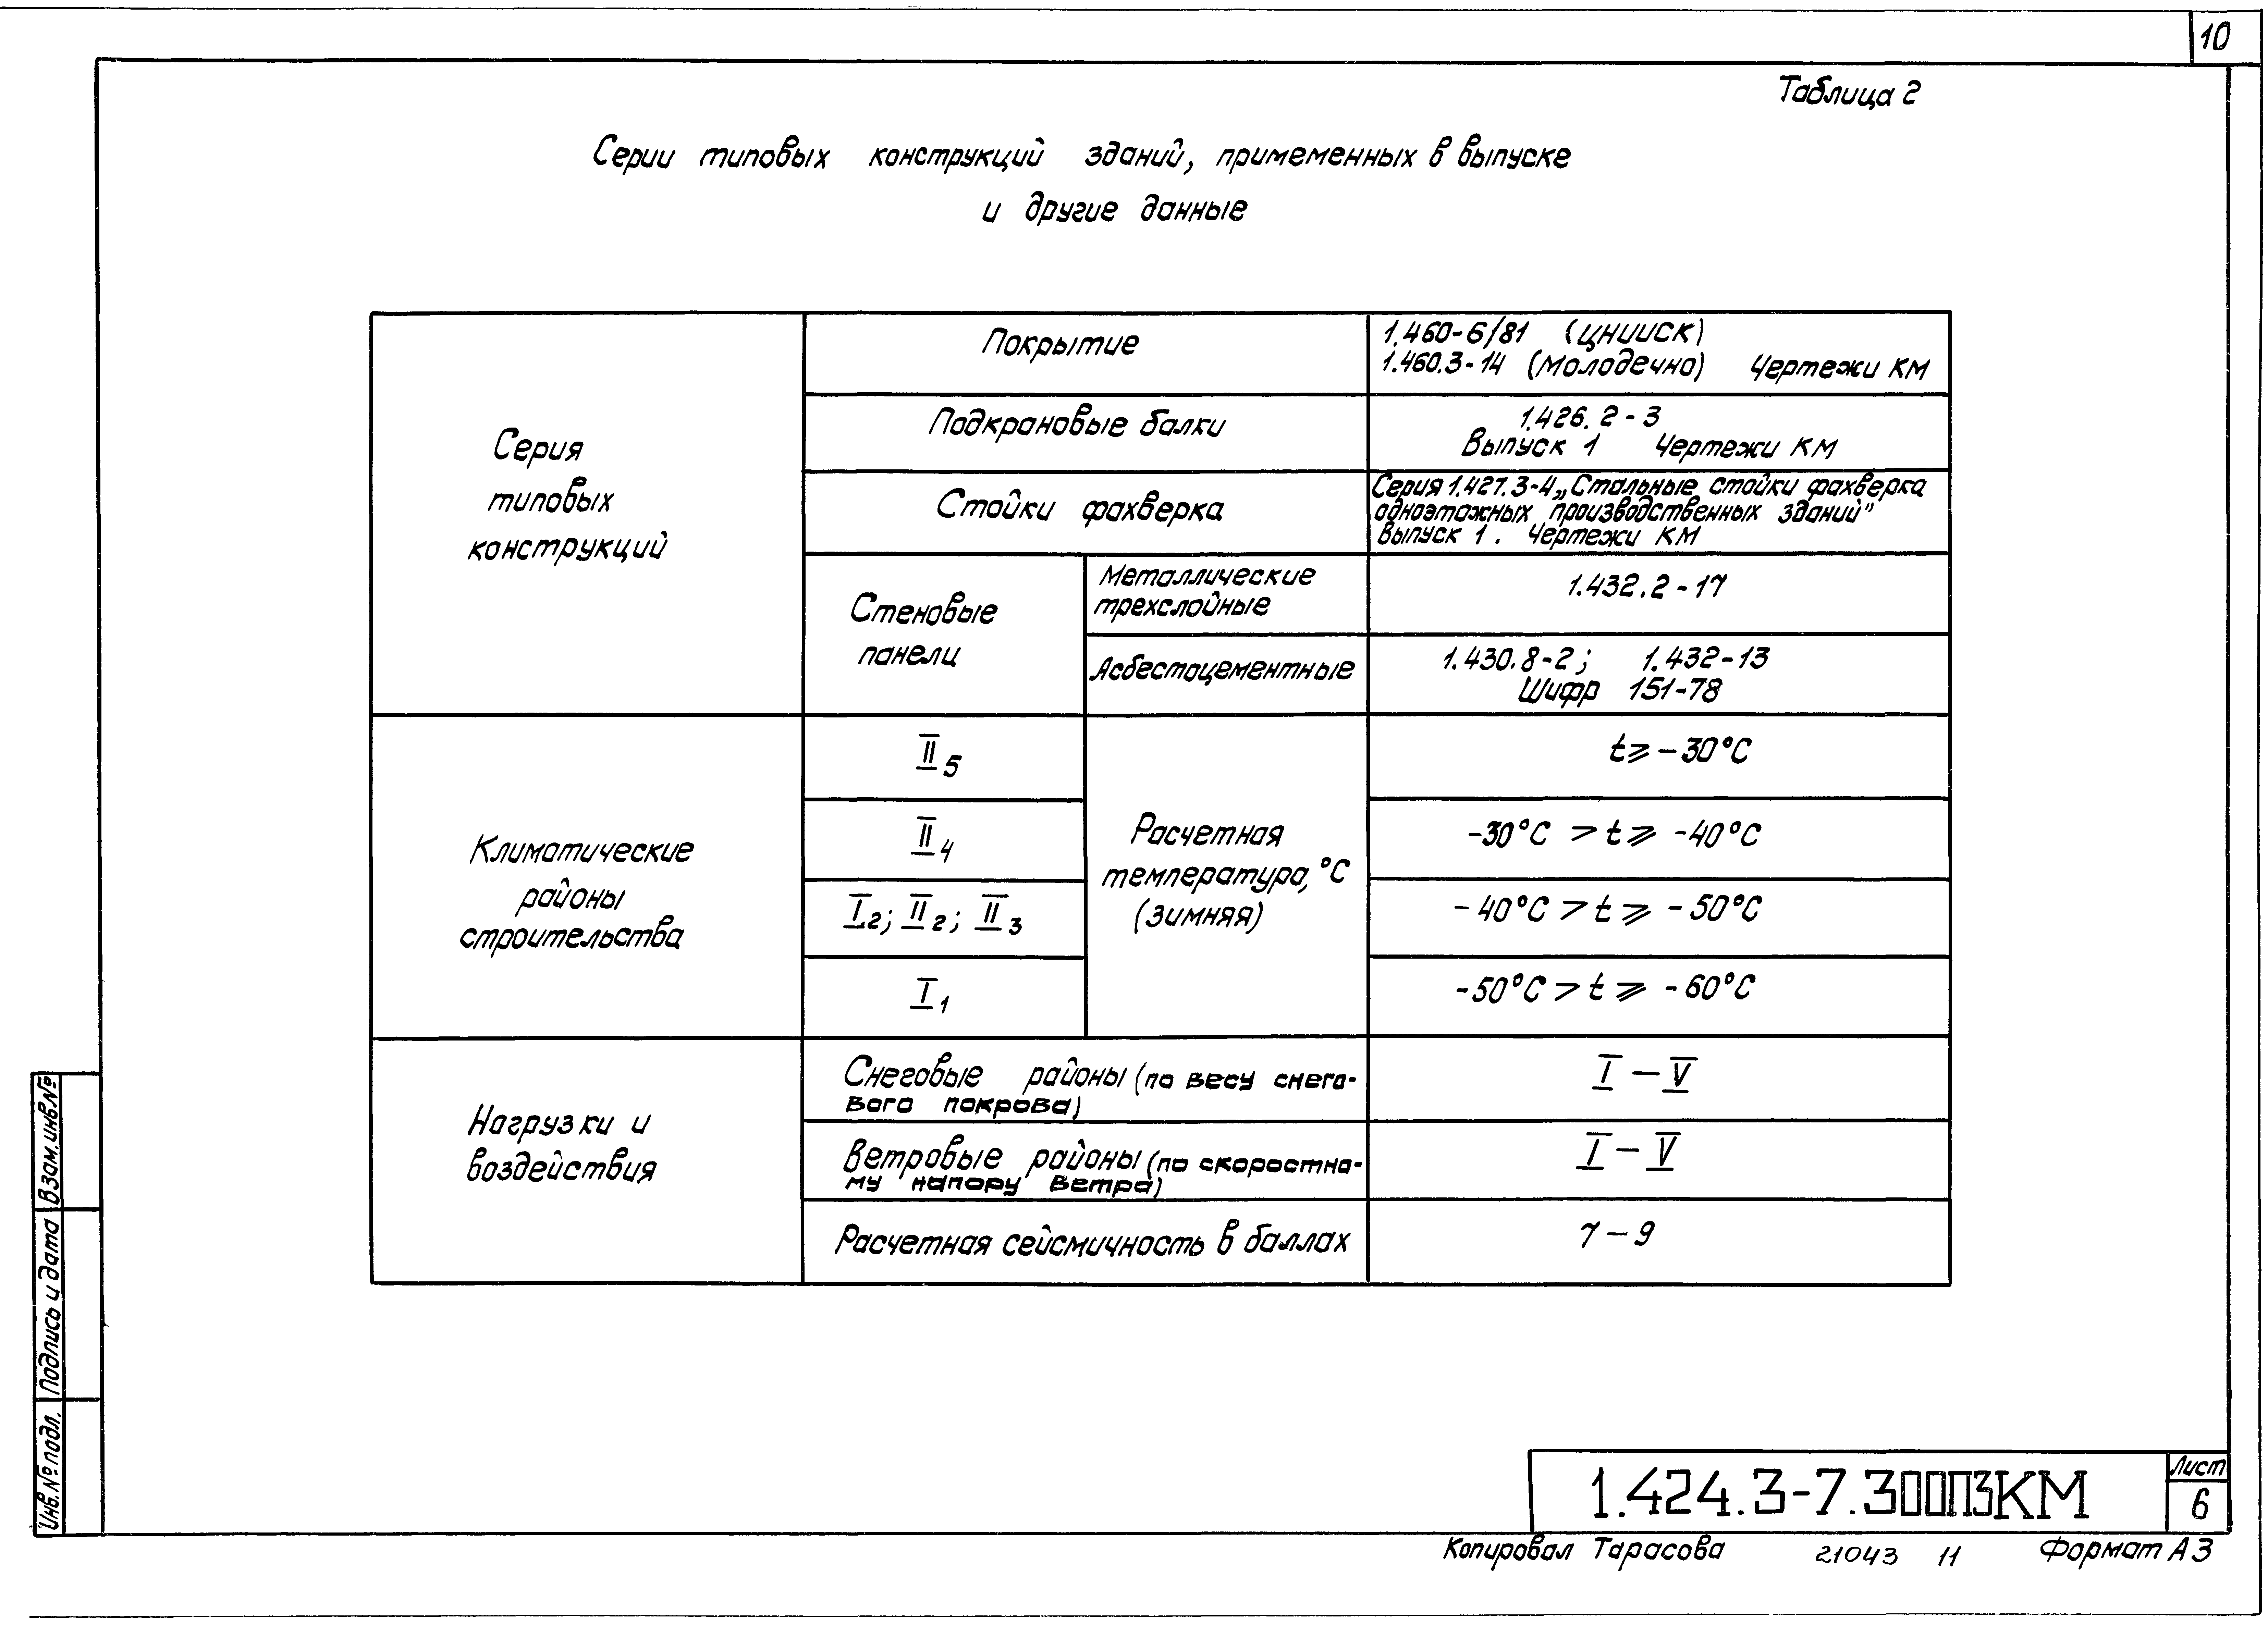 10
Таблица 2
Серии типовых конструкций зданий, применненных в выпуске
и другие данные
Серия
типовых
конструкций
Покрытие
1.460-6/81 (ЦНИИСК)
1.460.3-14 (Молодечно) Чертежи КМ
Подкрановые балки
1.426.2-3
Выпуск 1 Чертежи КМ
Стойки фахверка
Серия 1.427.3-4 „Стальные стойки фахверка
одноэтажных производственных зданий"
Выпуск 1. Чертежи КМ
Стеновые
панели
Металлические
трехслойные
1.432.2-17
Асбестоцементные
1.430.8-2; 1.432-13
Шифр 151-78
Климатические
районы
строительства
II5
Расчетная
температура, °С
(зимняя)
t ⩾ -30°С
II4
-30°С > t ⩾ -40°С
I2; II2; II3
-40°С > t ⩾ -50°С
I1
-50°С > t ⩾ -60°С
Нагрузки и
воздействия
Снеговые районы (по весу снего-
вого покрова)
I – V
Ветровые районы (по скоростно-
му напору ветра)
I – V
Расчетная сейсмичность в баллах
7 – 9
Взам. инв. №
Подпись и дата
Инв. № подл.
1.424.3-7.300ПЗКМ
Лист
6
Копировал Тарасова 21043 11 Формат А3